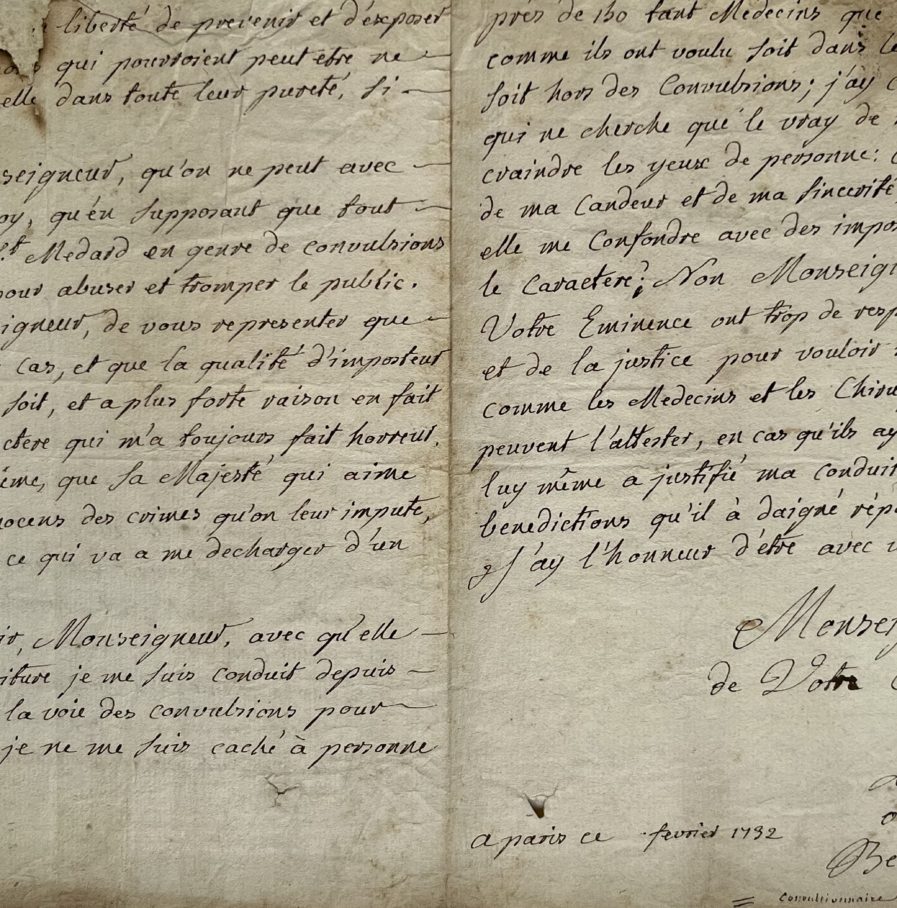 liberté de prevenir et d'exposer
qui pourroient peut etre ne
elle dans toute leur pureté, si
seigneur, qu'on ne peut avec
oy, qu'en supposant que tout
St Medard en genre de convulsions
pour abuser et tromper le public.
igneur, de vous representer que
cas, et que la qualité d'imposteur
soit, et a plus forte raison en fait
ctere qui m'a toujours fait horreur,
ême, que sa Majesté qui aime
nocens des crimes qu'on leur impute,
ce qui va a me decharger d'un
ir, Monseigneur, avec qu'elle
iture je me suis conduit depuis
la voie des convulsions pour
je ne me suis caché à personne
près de 130 tant Medecins que
comme ils ont voulu soit dans le
soit hors des Convulsions; j'ay
qui ne cherche que le vray de
craindre les yeux de personne:
de ma Candeur et de ma sincerité
elle me Confondre avec des impos
le Caractere? Non Monseign
Votre Eminence ont trop de resp
et de la justice pour vouloir
comme les Medecins et les Chiru
peuvent l'attester, en cas qu'ils ay
luy même a justifié ma conduit
benedictions qu'il à daigné rép
J'ay l'honneur d'être avec
Monseig
de Votre
a paris ce fevrier 1732
Be
Convulsionnaire